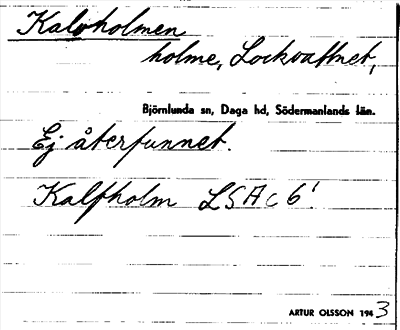 Kalvholmen
holme, Lockvattnet,
Björnlunda sn, Daga hd, Södermanlands län.
Ej återfunnet.
Kalfholm LSA c 6!
ARTUR OLSSON 1943